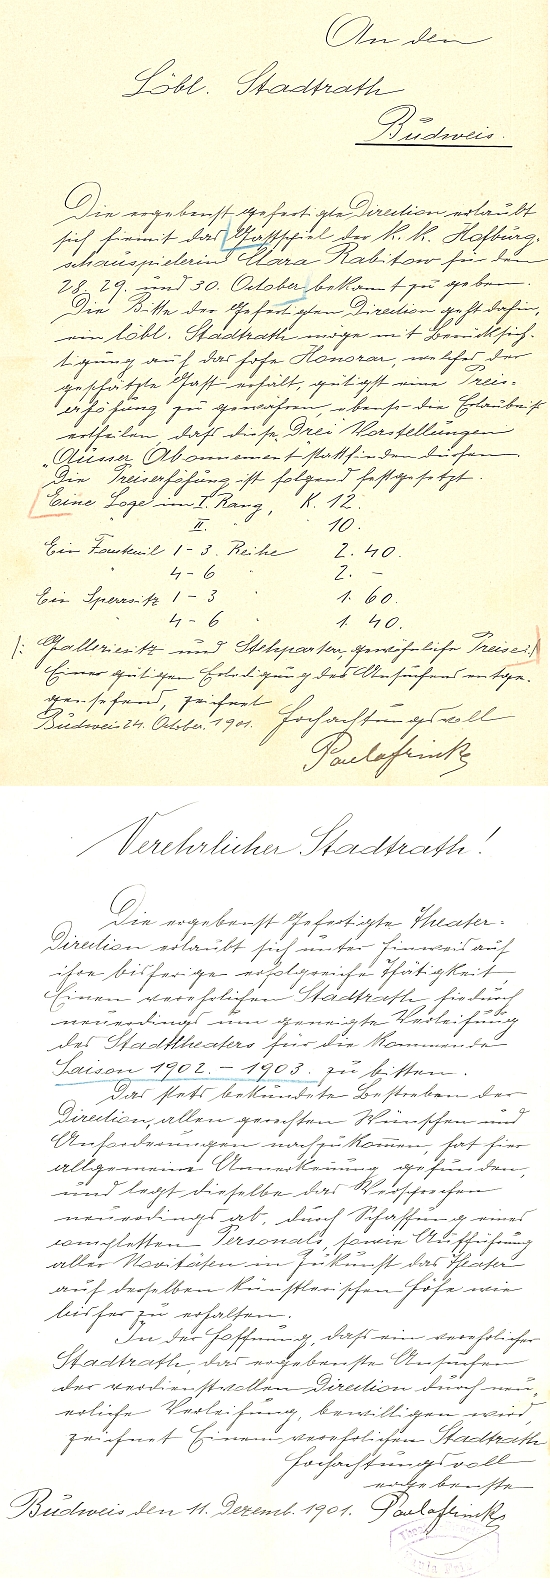 An den
Löbl. Stadtrath
Budweis.
Die ergebenst gefertigte Direction erlaubt
sich hiemit das Gastspiel der k. k. Hofburg-
schauspielerin Clara Rabitow für den
28. 29. und 30. October bekannt zu geben.
Die Bitte der gefertigten Direction geht dahin,
ein löbl. Stadtrath möge mit Berücksich-
tigung auf das hohe Honorar, welches der
geschätzte Gast erhält, gütigst eine Preis-
erhöhung zu gewähren, ebenso die Erlaubniß
ertheilen, daß diese Drei Vorstellungen
"Ausser Abonnement stattfinden dürfen.
Die Preiserhöhung ist folgend festgesetzt.
Eine Loge im I. Rang, K. 12.
" II. " 10.
Ein Fauteuil 1-3. Reihe 2. 40.
" 4-6 " 2. -
Ein Sperrsitz 1-3 " 1. 60.
" 4-6 " 1. 40.
/: Galleriesitz und Stehparterr, gewöhnliche Preise:/
Einer gütigen Erledigung des Ansuchens entge-
gensehend, zeichnet
Budweis 24. October. 1901. Hochachtungsvoll
Paula Frinke
Verehrlicher Stadtrath!
Die ergebenst Gefertigte Theater-
Direction erlaubt sich unter Hinweis auf
ihre bisherige erfolgreiche Thätigkeit,
Einen verehrlichen Stadtrath hiedurch
neuerdings um geneigte Verleihung
des Stadttheaters für die kommende
Saison 1902. - 1903. zu bitten.
Das stets bekundete Bestreben der
Direction, allen gerechten Wünschen und
Anforderungen nachzukommen, hat hier
allgemeine Anerkennung gefunden,
und legt dieselbe das Versprechen
neuerdings ab, durch Schaffung eines
completten Personals, sowie Aufführung
aller Novitäten in Zukunft das Theater
auf derselben künstlerischen Höhe wie
bisher zu erhalten.
In der Hoffnung, dass ein verehrlicher
Stadtrath, das ergebenste Ansuchen
der verdienstvollen Direction durch neu-
erliche Verleihung, bewilligen wird,
zeichnet Einem verehrlichen Stadtrath
Hochachtungsvoll
ergebenste
Budweis den 11. Dezemb. 1901. Paula Frinke